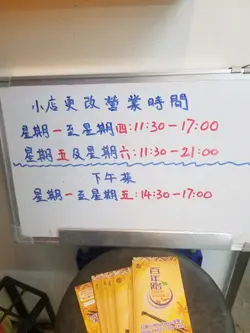 小店更改營業時間
星期一至星期四:11:30-17:00
星期五及星期六:11:30-21:00
下午茶
星期一至星期五:14:30-17:00
百年